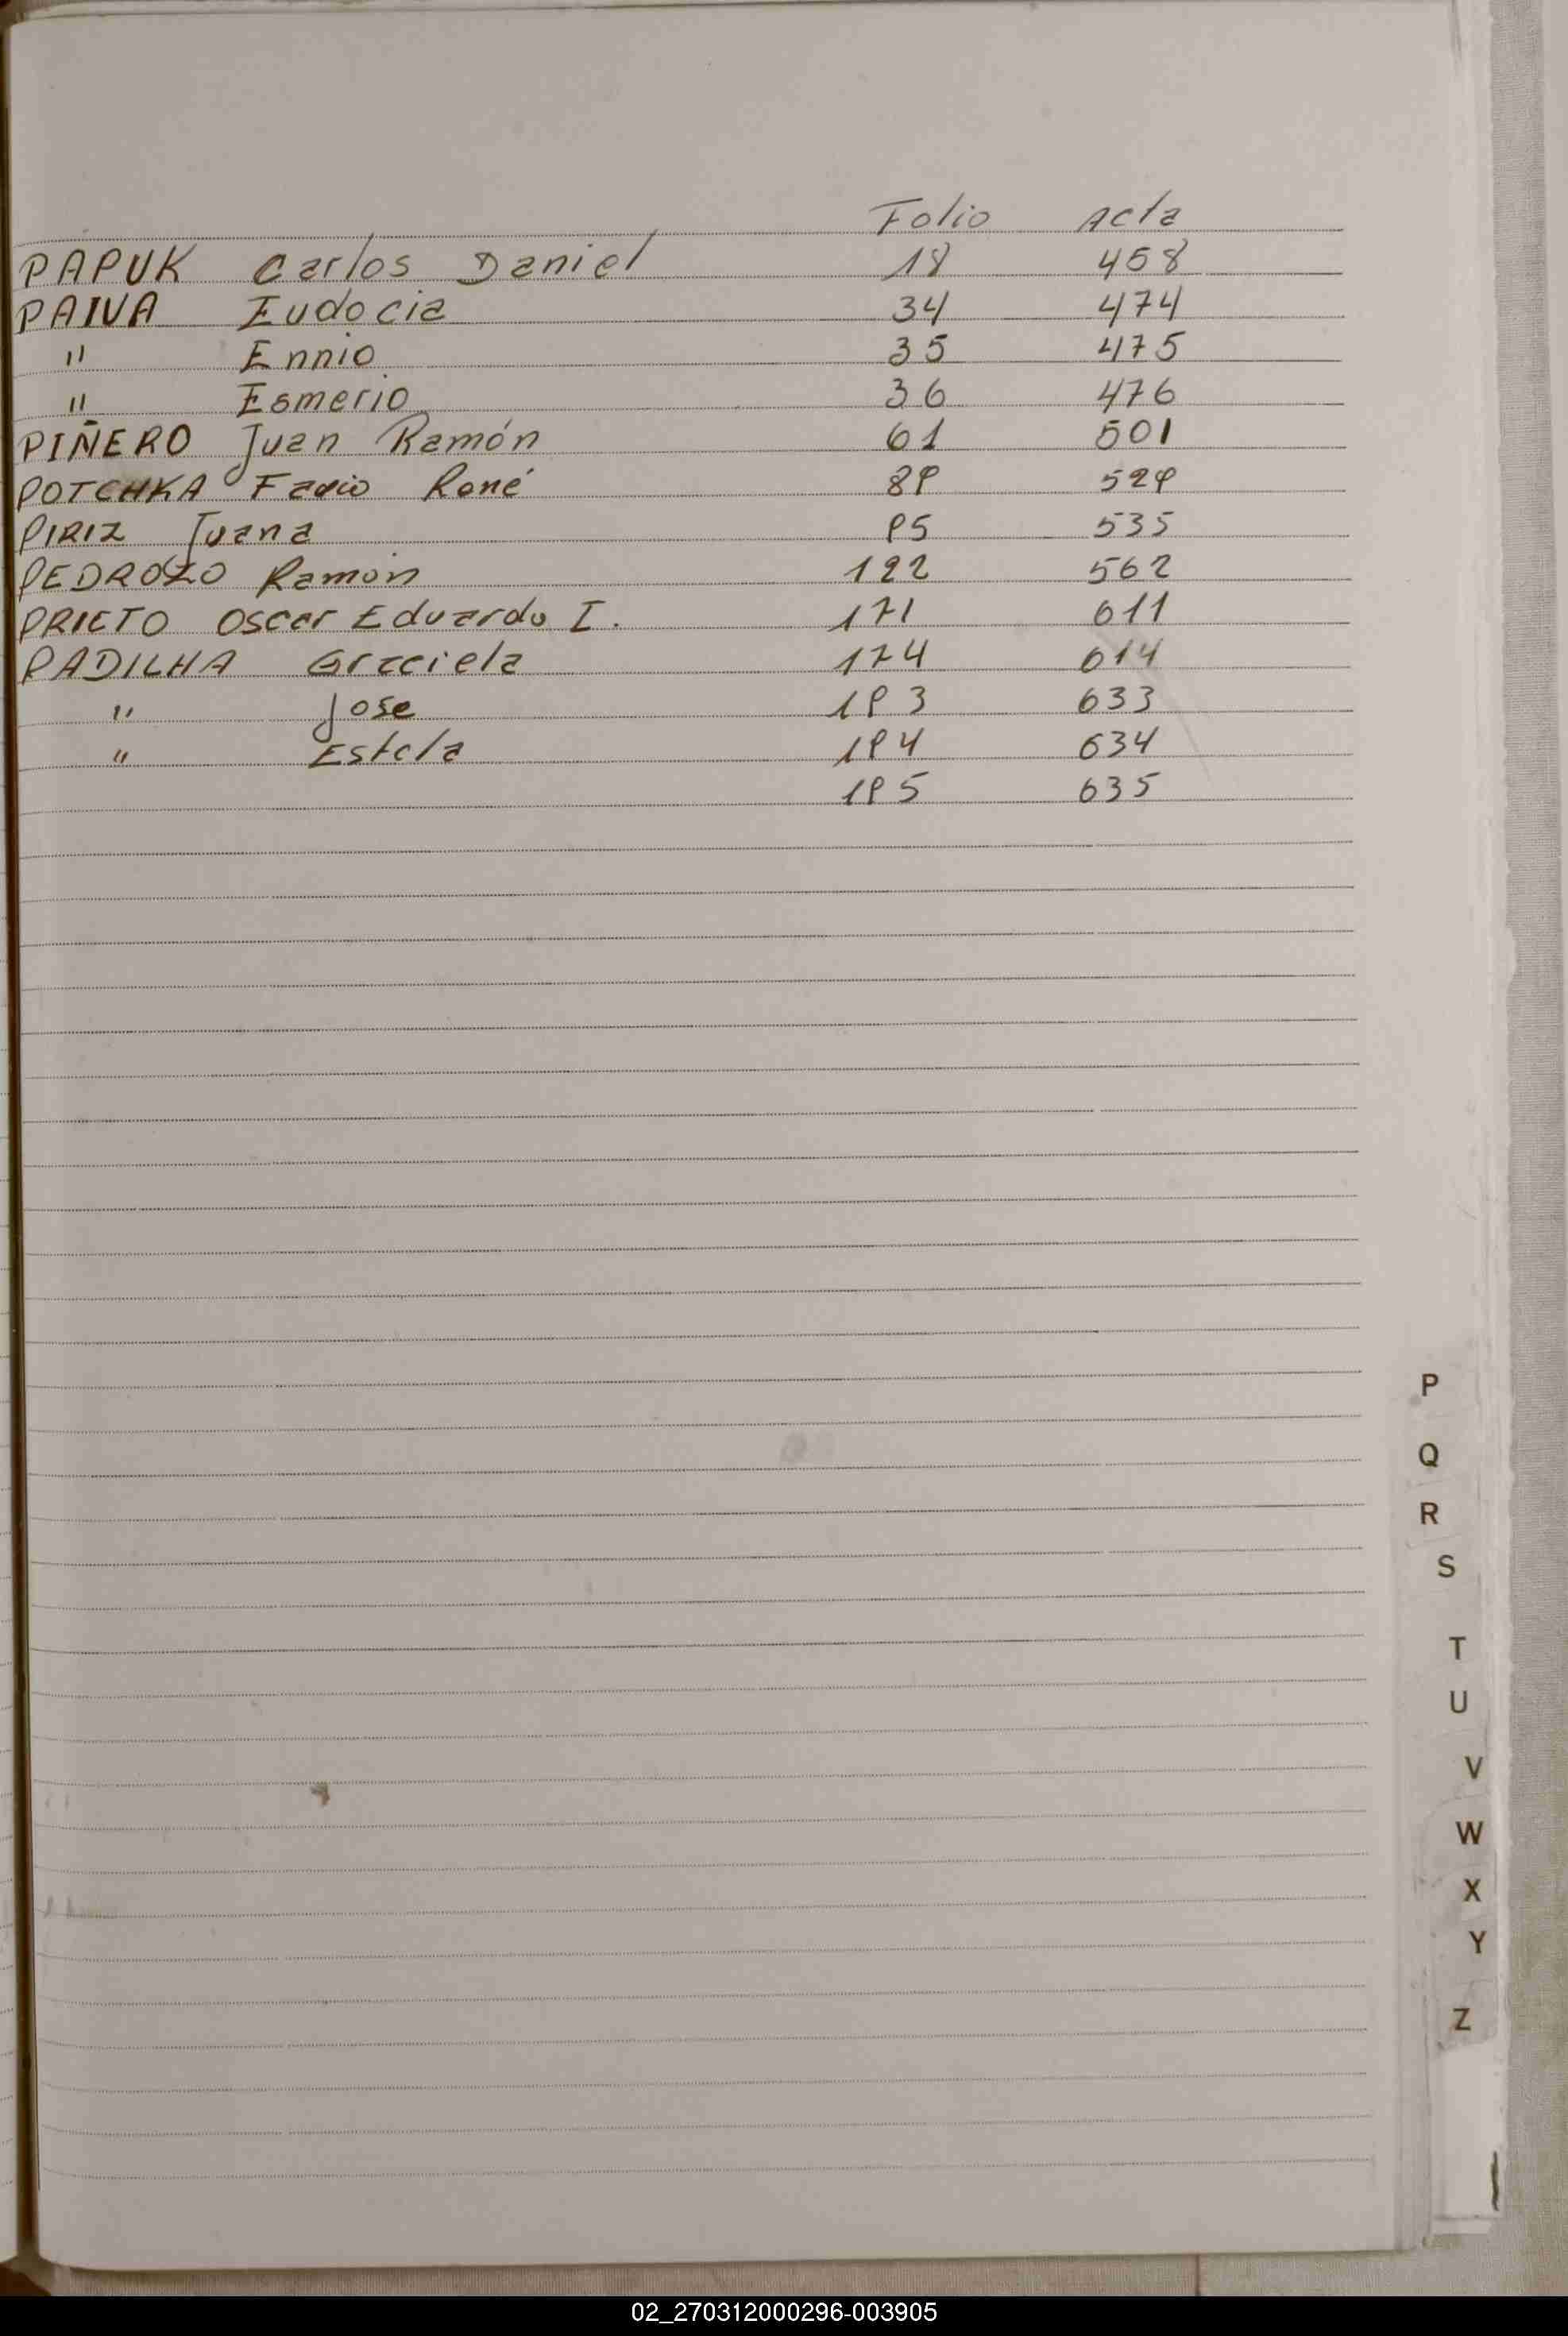 Folio Acta
PAPUK Carlos Daniel 18 458
PAIVA Eudocia 34 474
" Ennio 35 475
" Esmerio 36 476
PIÑERO Juan Ramón 61 501
POTCHKA Favio René 89 529
PIRIZ Juana 95 535
PEDROZO Ramón 122 562
PRIETO Oscar Eduardo I. 171 611
PADILHA Graciela 174 614
" Jose 193 633
" Estela 194 634
195 635
P
Q
R
S
T
U
V
W
X
Y
Z
02_270312000296-003905